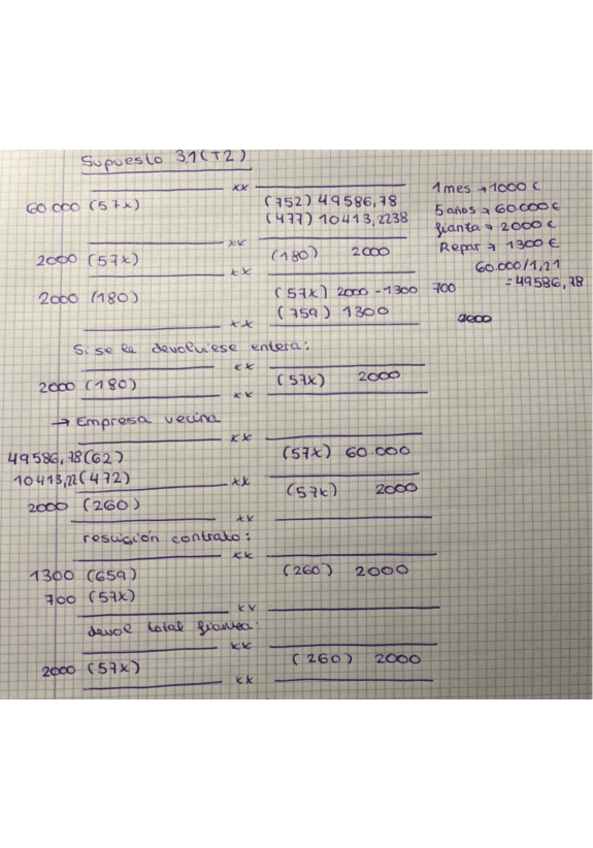 Supuesto 3.1 (T2)
xx
60.000 (57x) (752) 49586,78
(477) 10413,2238
1 mes → 1000 €
5 años → 60.000 €
fianza → 2000 €
Repar → 1300 €
60.000/1,21
= 49586,78
xx
2000 (57x) (180) 2000
xx
2000 (180) (57x) 2000 - 1300 700
(759) 1300
xx
Si se le devolviese entera:
xx
2000 (180) (57x) 2000
xx
→ Empresa vecina
xx
49586,78 (62) (57x) 60.000
10413,22 (472)
xx
2000 (260) (57x) 2000
xx
resución contrato:
xx
1300 (659) (260) 2000
700 (57x)
xx
devol total fianza:
xx
2000 (57x) (260) 2000
xx